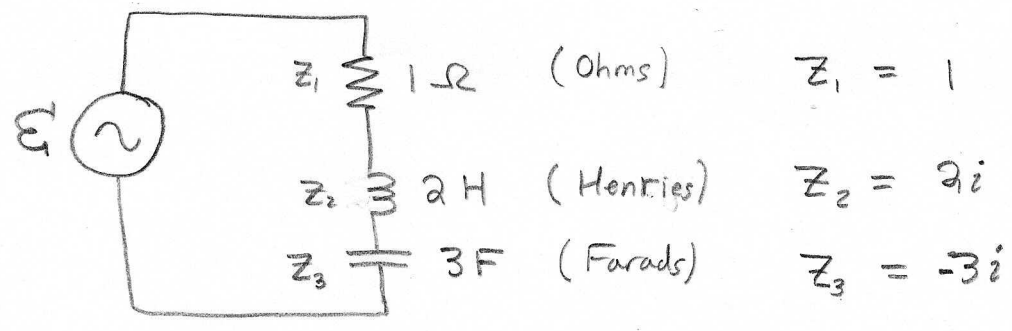 Z₁ 1 Ω (Ohms) Z₁ = 1
ℰ
Z₂ 2 H (Henries) Z₂ = 2i
Z₃ 3F (Farads) Z₃ = -3i